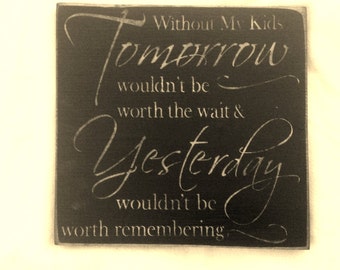 Without My Kids
Tomorrow
wouldn't be
worth the wait &
Yesterday
wouldn't be
worth remembering